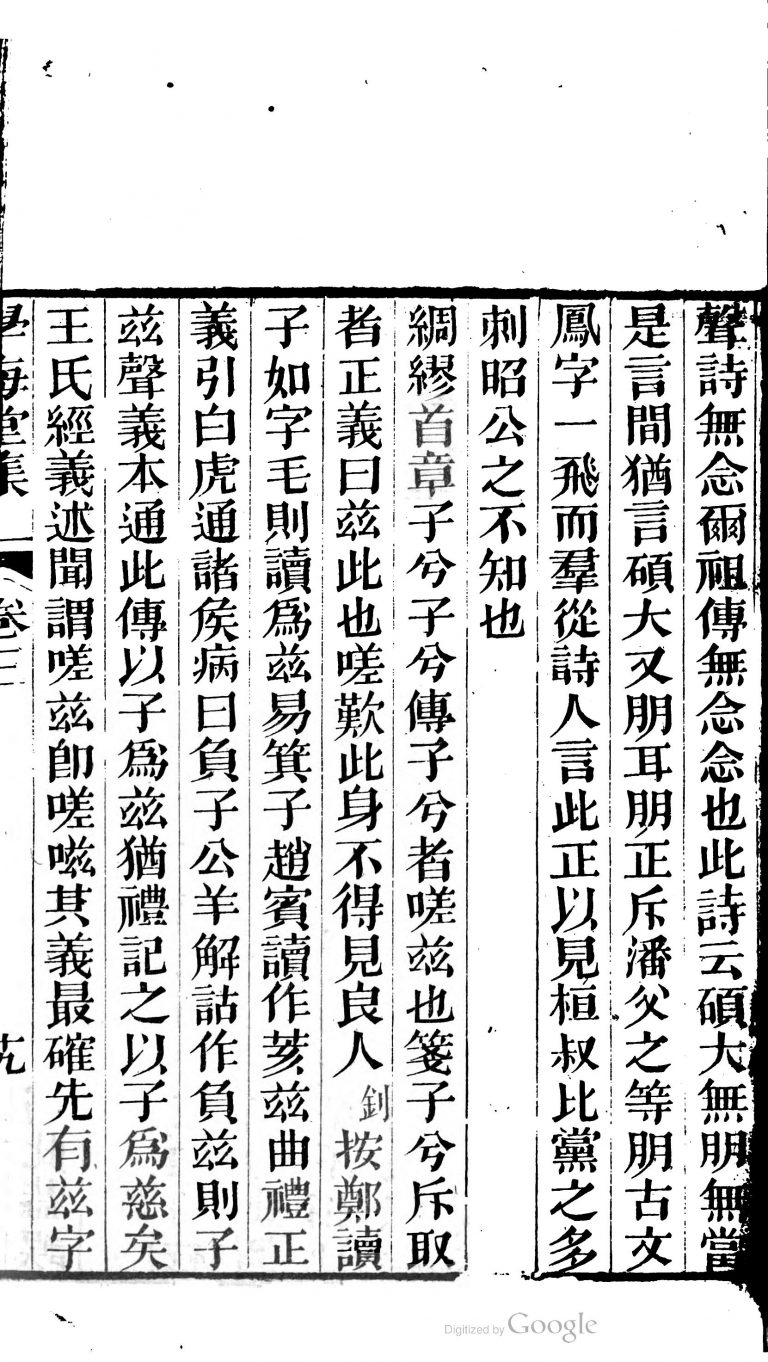 聲詩無念爾祖傳無念念也此詩云碩大無朋無當
是言間猶言碩大又朋耳朋正斥潘父之等朋古文
鳳字一飛而羣從詩人言此正以見桓叔比黨之多
刺昭公之不知也
綢繆首章子兮子兮傳子兮者嗟茲也箋子兮斥取
者正義曰茲此也嗟歎此身不得見良人釗按鄭讀
子如字毛則讀爲茲易箕子趙賓讀作荄茲曲禮正
義引白虎通諸矦病曰負子公羊解詁作負茲則子
茲聲義本通此傳以子爲茲猶禮記之以子爲慈矣
王氏經義述聞謂嗟茲卽嗟嗞其義最確先有茲字
學海堂集 卷三
Digitized by Google